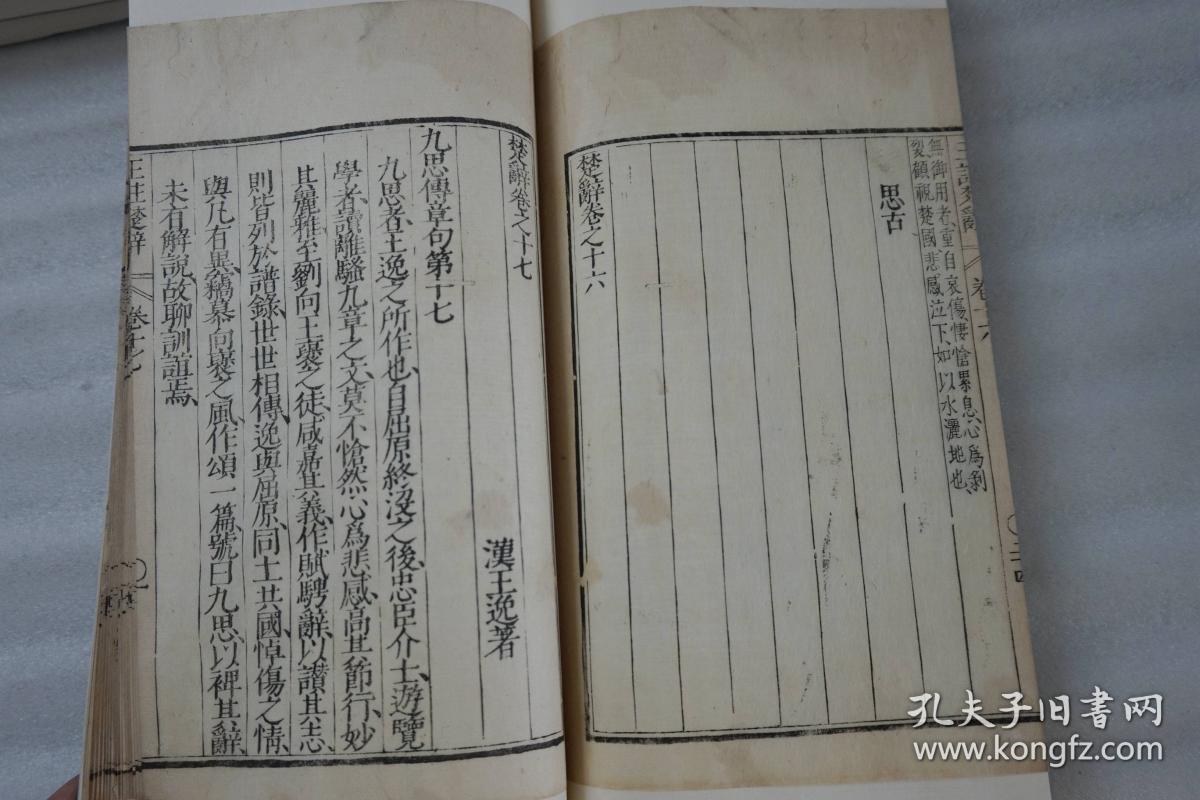 無御用者重自哀傷悽愴累息心爲剝
裂顧視楚國悲感泣下如以水灑地也
思古
楚辭卷之十六
楚辭卷之十七
漢王逸著
九思傳章句第十七
九思者王逸之所作也自屈原終沒之後忠臣介士遊覽
學者讀離騷九章之文莫不愴然心爲悲感高其節行妙
其麗雅至劉向王襃之徒咸嘉其義作賦騁辭以讃其志
則皆列於譜錄世世相傳逸與屈原同土共國悼傷之情
與凡有異竊慕向襃之風作頌一篇號曰九思以裨其辭
未有解說故聊訓誼焉
王註楚辭 卷十七
孔夫子旧书网
www.kongfz.com